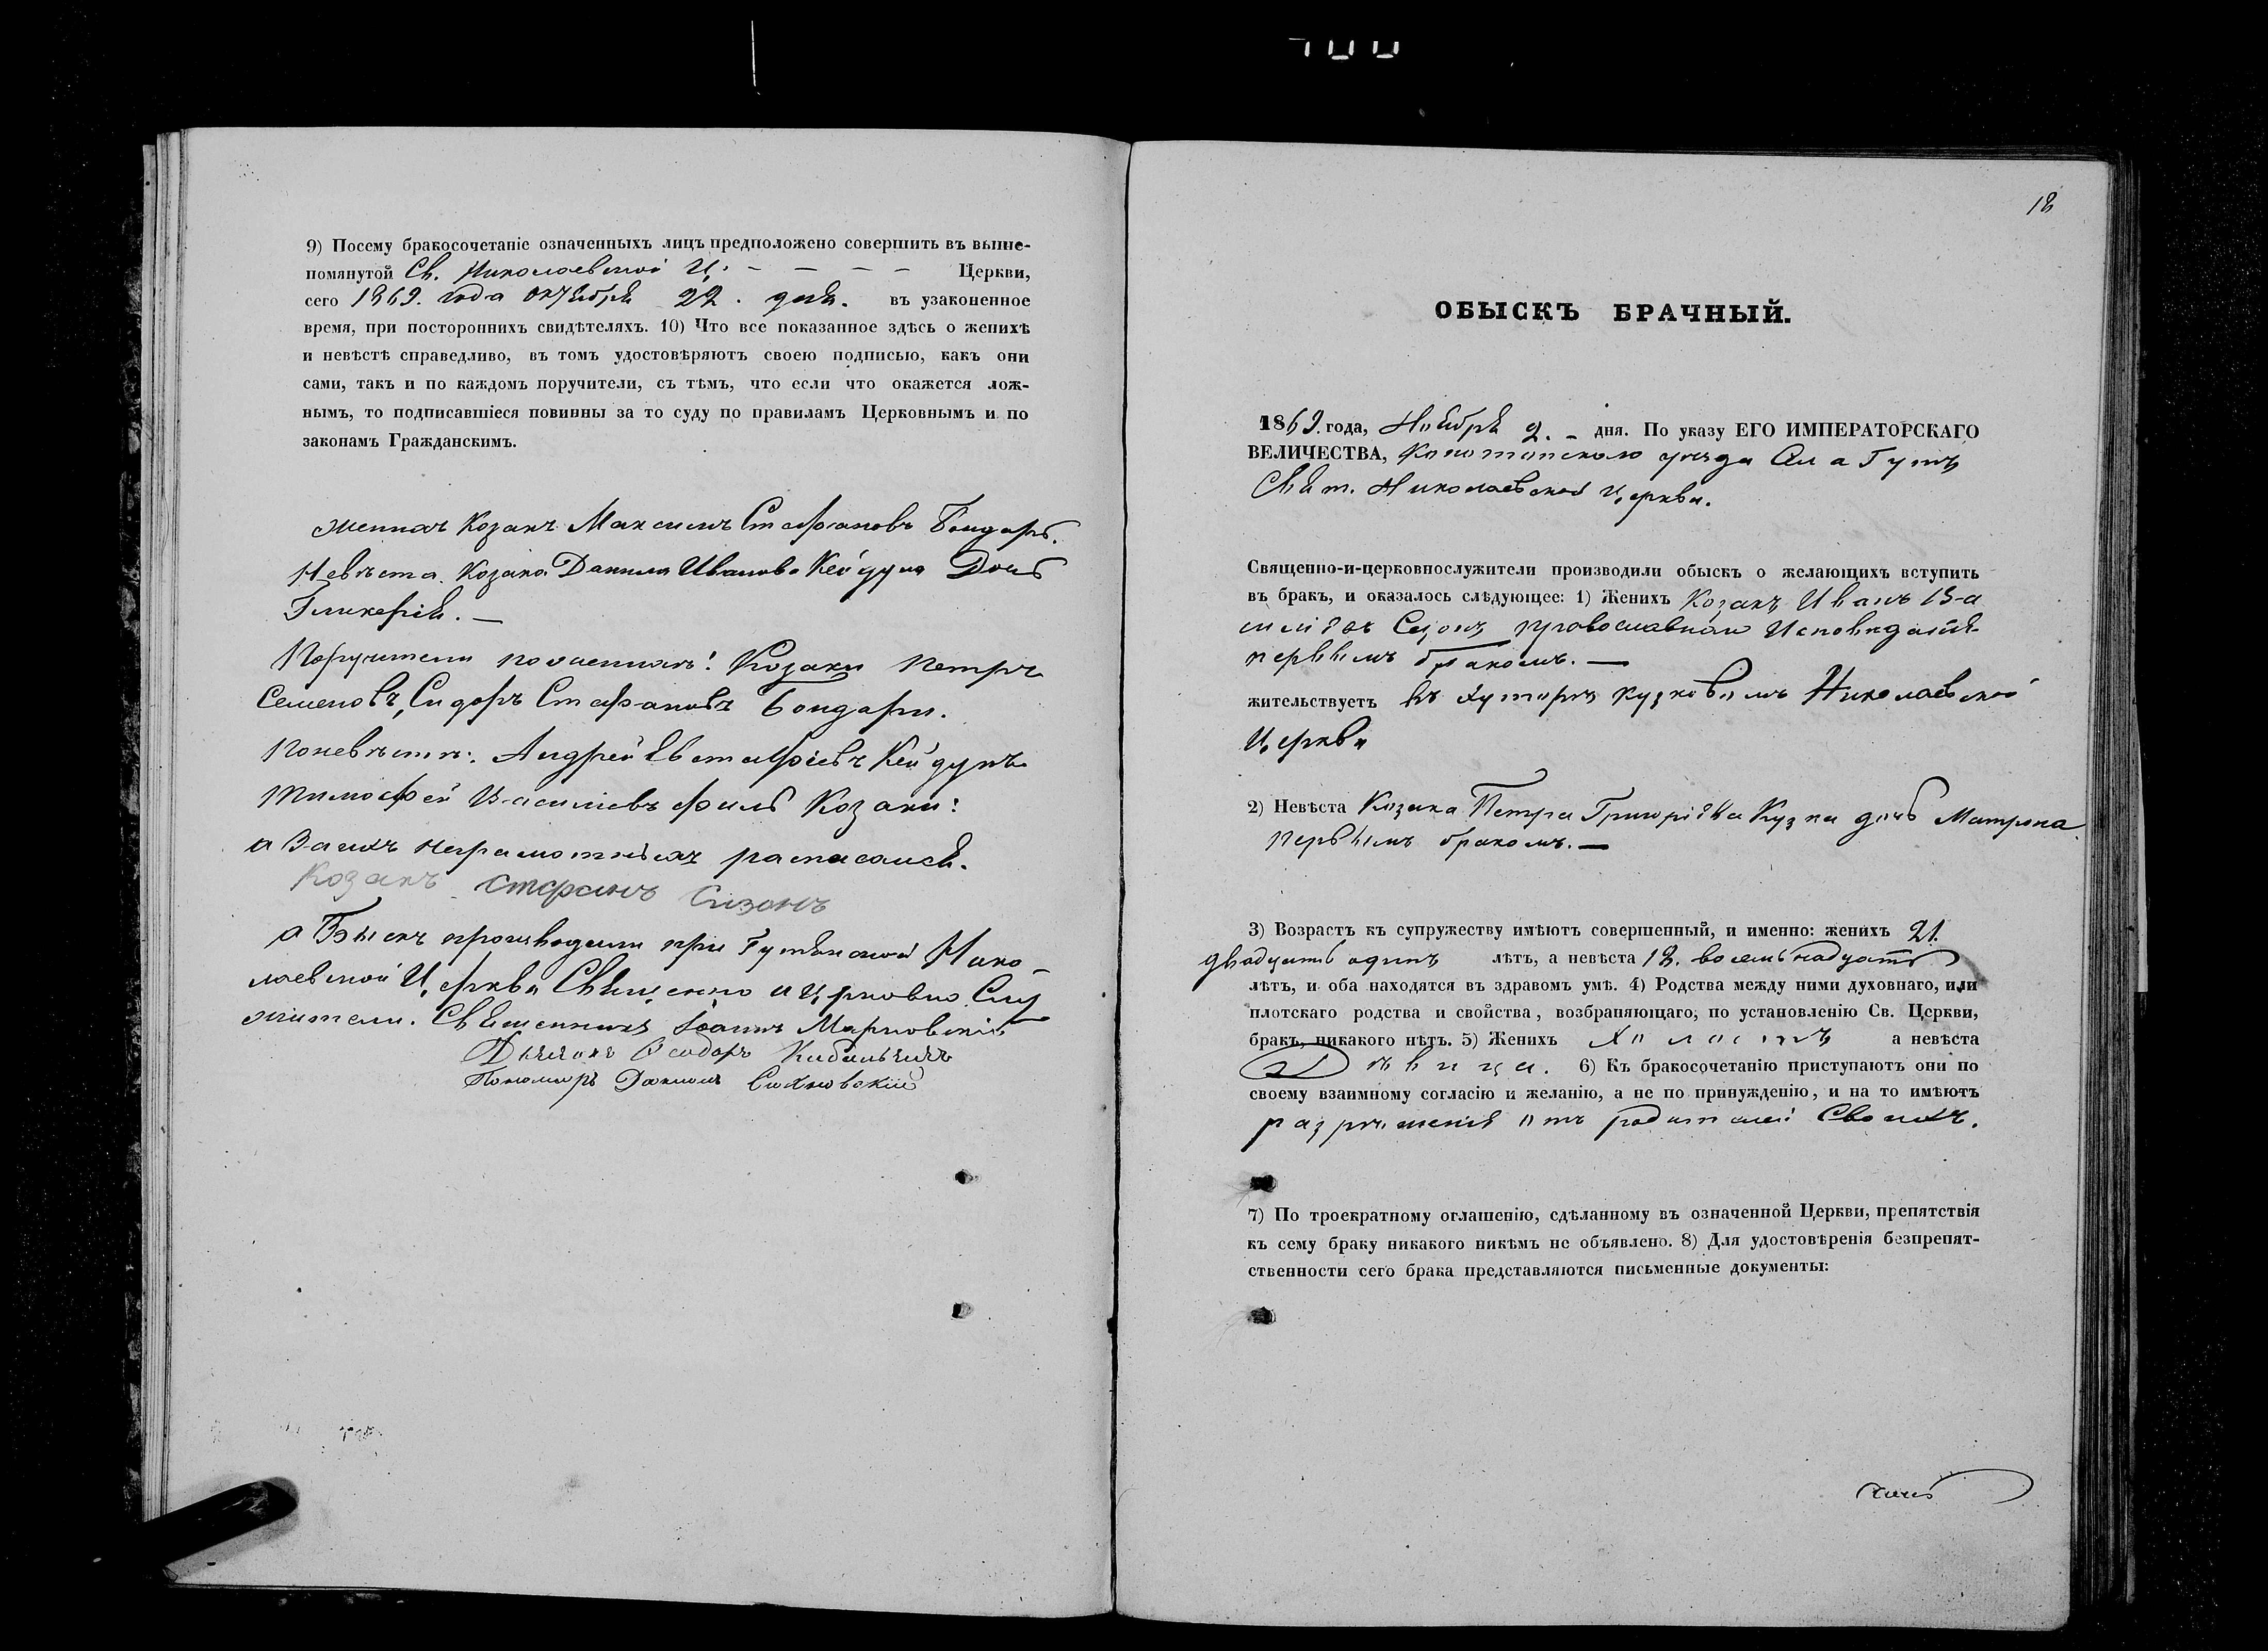 9) Посему бракосочетаніе означенныхъ лицъ предположено совершить въ выше-
помянутой Св. Николаевской Ц. – – – – Церкви,
сего 1869. года октября 22. дня. въ узаконенное
время, при постороннихъ свидѣтеляхъ. 10) Что все показанное здѣсь о женихѣ
и невѣстѣ справедливо, въ томъ удостовѣряютъ своею подписью, какъ они
сами, такъ и по каждомъ поручители, съ тѣмъ, что если что окажется лож-
нымъ, то подписавшіеся повинны за то суду по правиламъ Церковнымъ и по
законамъ Гражданскимъ.
женихъ Козакъ Максимъ Стефановъ Бондарь.
Невѣста Козака Данила Иванова Кейдуна Дочь
Гликерія. —
Поручители по женихѣ: Козаки Петръ
Семеновъ, Сидоръ Стефановъ Бондари.
По невѣстѣ: Андрей Евстафіевъ Кейдунъ
Тимофей Василіевъ Филь Козаки:
а За ихъ неграмотныхъ расписался.
Козакъ Стефанъ Сизонъ
а Обыскъ производили при Гутянской Нико-
лаевской Церкви Священно и Церковно Слу
жители. Священникъ Іоаннъ Марковскій
Дьячокъ Исидоръ
Пономарь
18
ОБЫСКЪ БРАЧНЫЙ.
1869. года, Ноября 2. – дня. По указу ЕГО ИМПЕРАТОРСКАГО
ВЕЛИЧЕСТВА, Конотопскаго уѣзда Села Гутъ
Свят. Николаевской Церкви.
Священно-и-церковнослужители производили обыскъ о желающихъ вступить
въ бракъ, и оказалось слѣдующее: 1) Женихъ Козакъ Иванъ Ва
силіевъ Сезонъ православнаго Исповѣданія
первымъ бракомъ. —
жительствуетъ въ хуторѣ Кузковомъ Николаевской
Церкви
2) Невѣста Козака Петра Григоріева Кузка дочь Матрона
первымъ бракомъ. —
3) Возрастъ къ супружеству имѣютъ совершенный, и именно: женихъ 21.
двадцать одинъ лѣтъ, а невѣста 18. восемьнадцать
лѣтъ, и оба находятся въ здравомъ умѣ. 4) Родства между ними духовнаго, или
плотскаго родства и свойства, возбраняющаго, по установленію Св. Церкви,
бракъ, никакого нѣтъ. 5) Женихъ Холостъ а невѣста
Дѣвица. 6) Къ бракосочетанію приступаютъ они по
своему взаимному согласію и желанію, а не по принужденію, и на то имѣютъ
разрѣшенія отъ родителей Своихъ.
7) По троекратному оглашенію, сдѣланному въ означенной Церкви, препятствія
къ сему браку никакого никѣмъ не объявлено. 8) Для удостовѣренія безпрепят-
ственности сего брака представляются письменные документы: